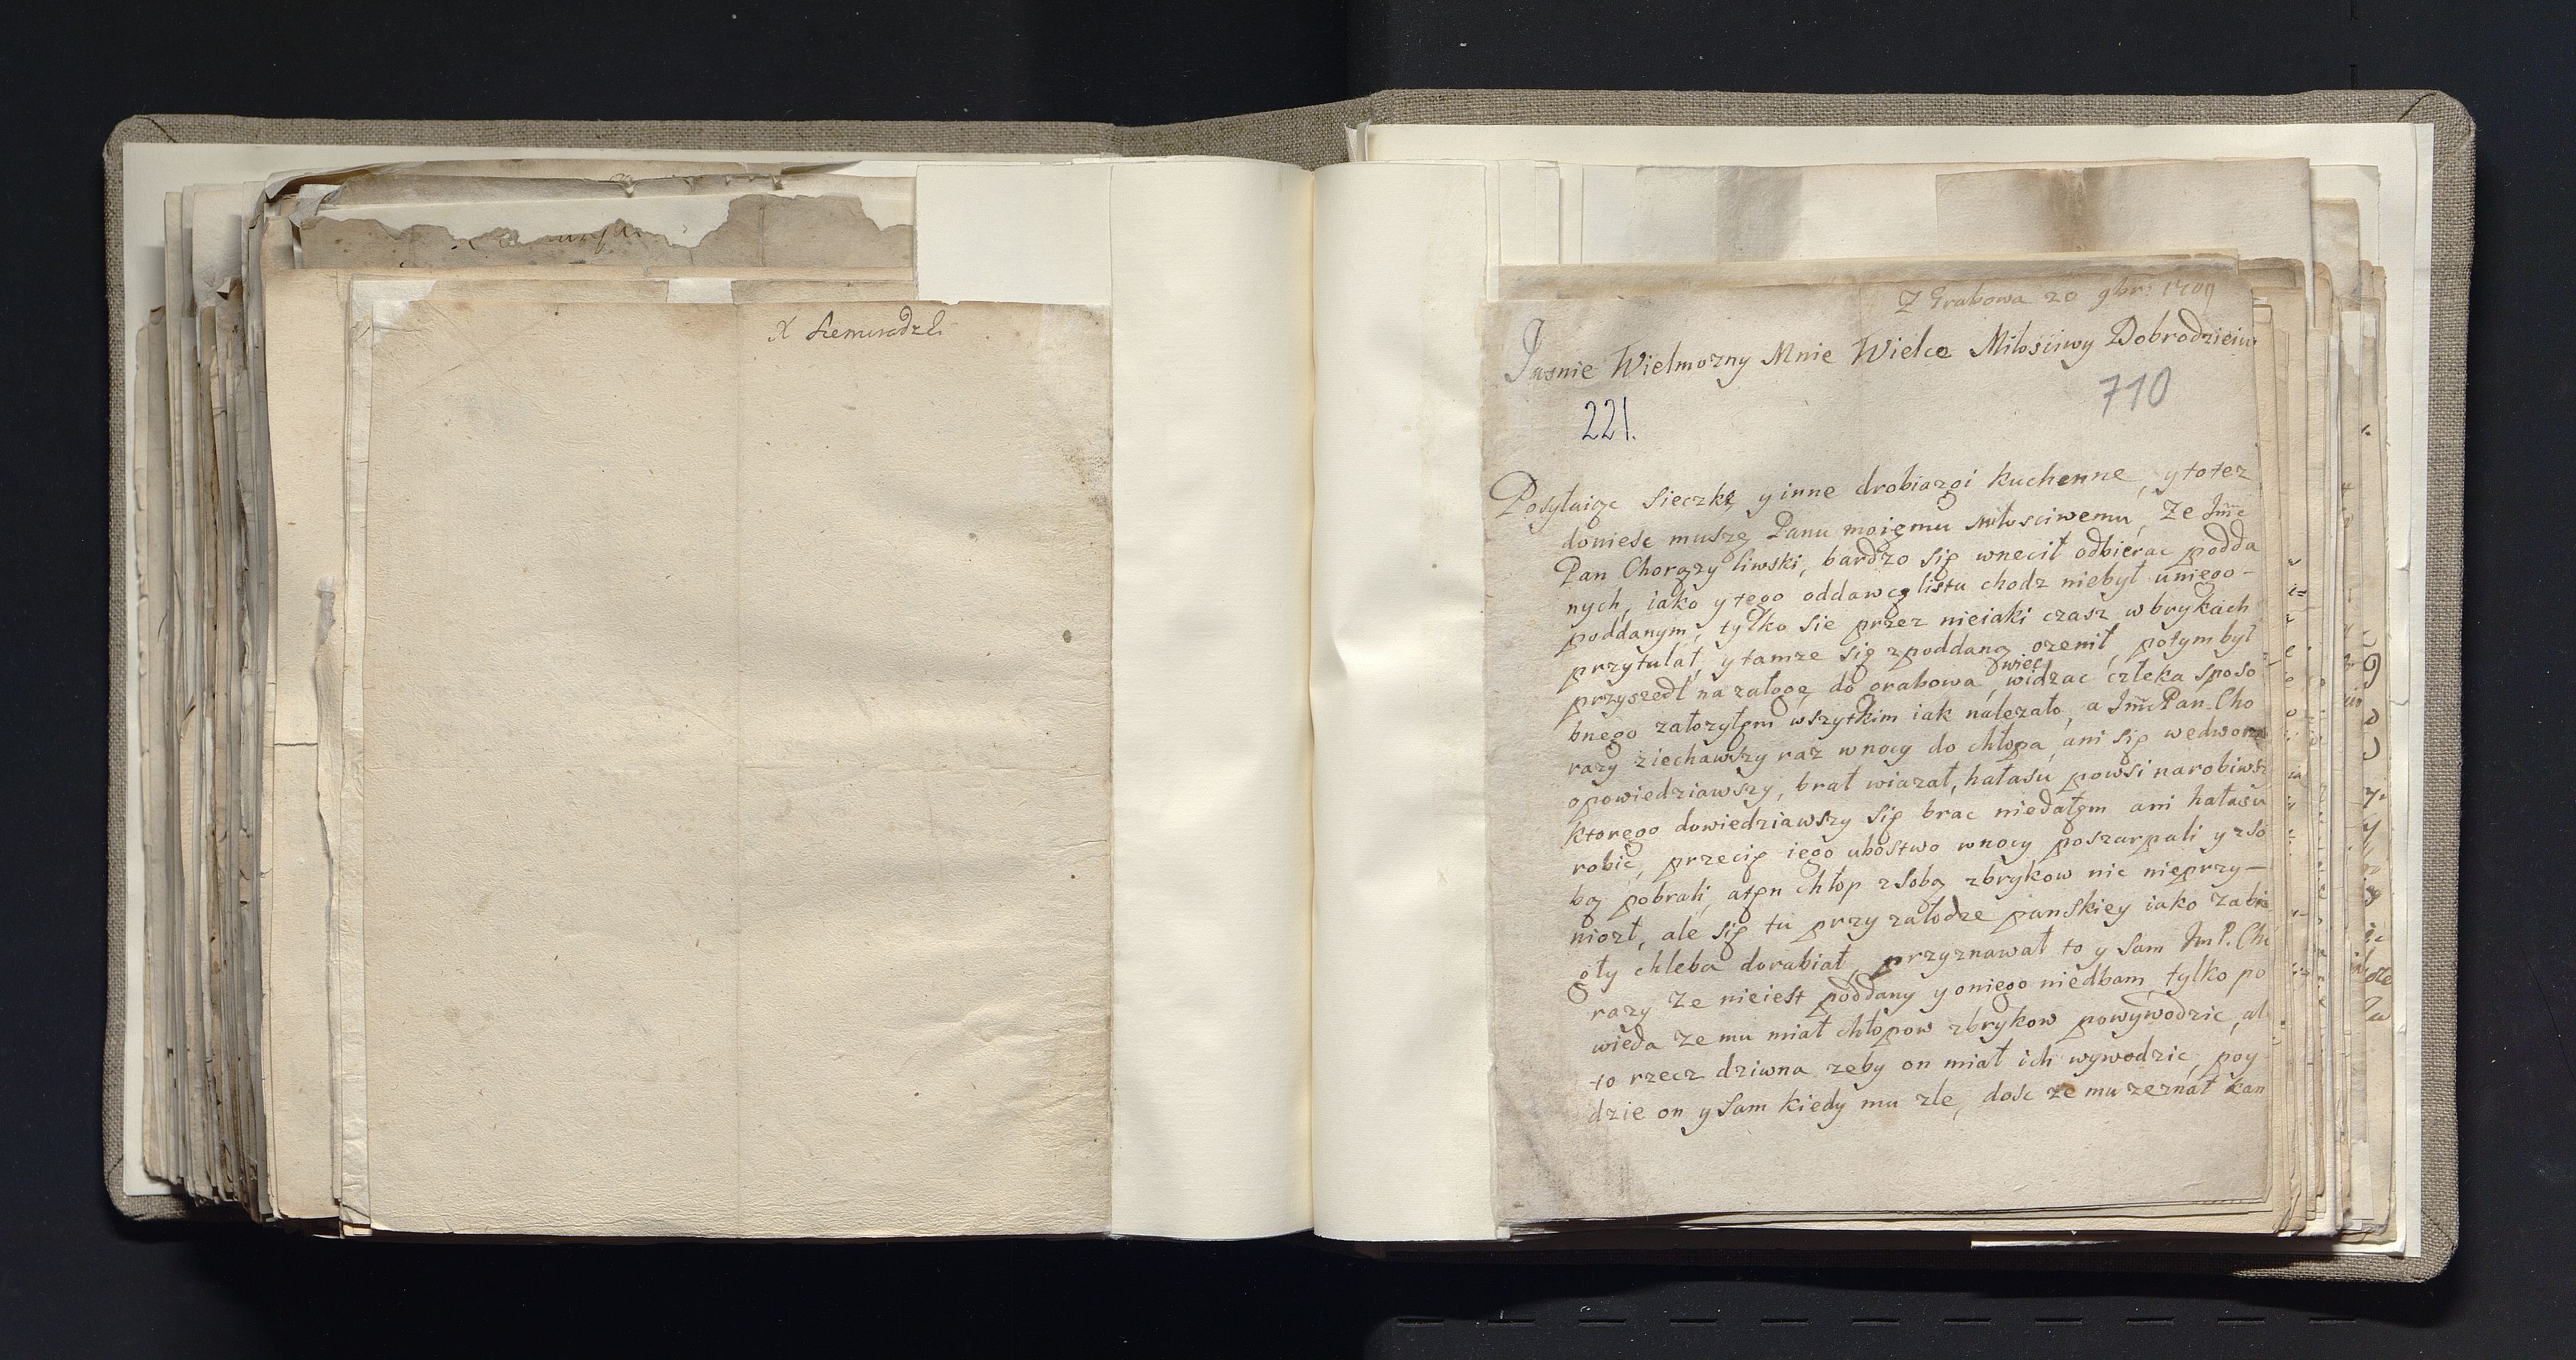 X Siemiradzki
Z Grabowa 20 9br: 1709
Jasnie Wielmozny Mnie Wielce Miłosciwy Dobrodzieiu
710
221.
Posyłaiąc Sieczkę y inne drobiazgi kuchenne, y totez
doniesc muszę Panu moięmu miłosciwemu, Ze Jmc
Pan Chorązy liwski, bardzo się wnecił odbierac podda
nych, iako y tego oddawcę listu chodz niebył uniego-
poddanym, tylko sie przez nieiaki czasz w brykach
przytulał, y tamze się zpoddaną ozenił, potym był
przyszedł na załogę do grabowa, więc widząc człeka sposo
bnego załozyłęm wszytkim iak nalezało, a Jmc Pan Cho
rązy ziechawszy raz wnocy do chłopa, ani się wedworze
opowiedziawszy, brał wiazał, hałasu powsi narobiwsz
ktorego dowiedziawszy się brac niedałęm ani hałasu
robic, przecię iego ubostwo wnocy poszarpali y zso
bą pobrali, atęn chłop zsobą zbrykow nic nieprzy-
niozł, ale się tu przy załodze panskiey iako
gły chleba dorabiał, przyznawał to y sam JmP. Cho
razy ze nieiest poddany y oniego niedbam, tylko po
wieda ze mu miał chłopow zbrykow powywodzic, al
to rzecz dziwna zeby on miał ich wywodzic, poy
dzie on y sam kiedy mu zle, dosc ze mu zeznał kan